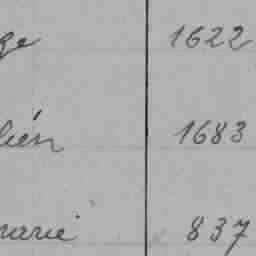 ge 1622
lién 1683
marie 837